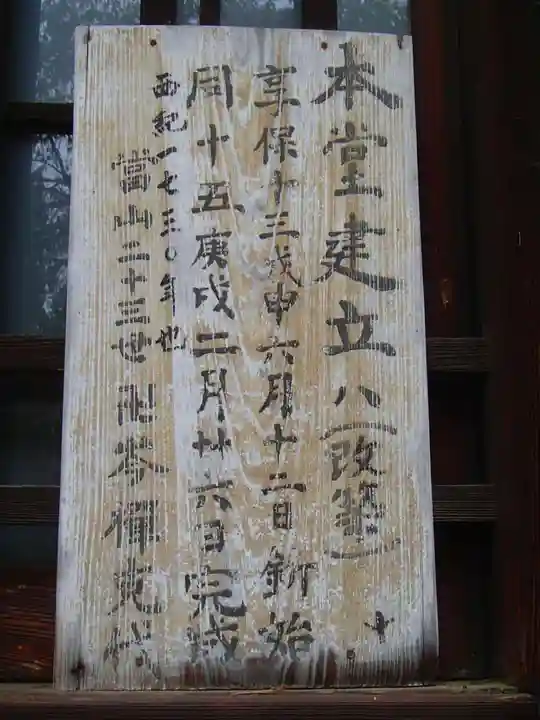 本堂建立ハ(改築)
享保十三戊申六月十二日釿始
同十五庚戌二月廿六日完成
西紀一七三〇年也
當山二十三世 禅吏代